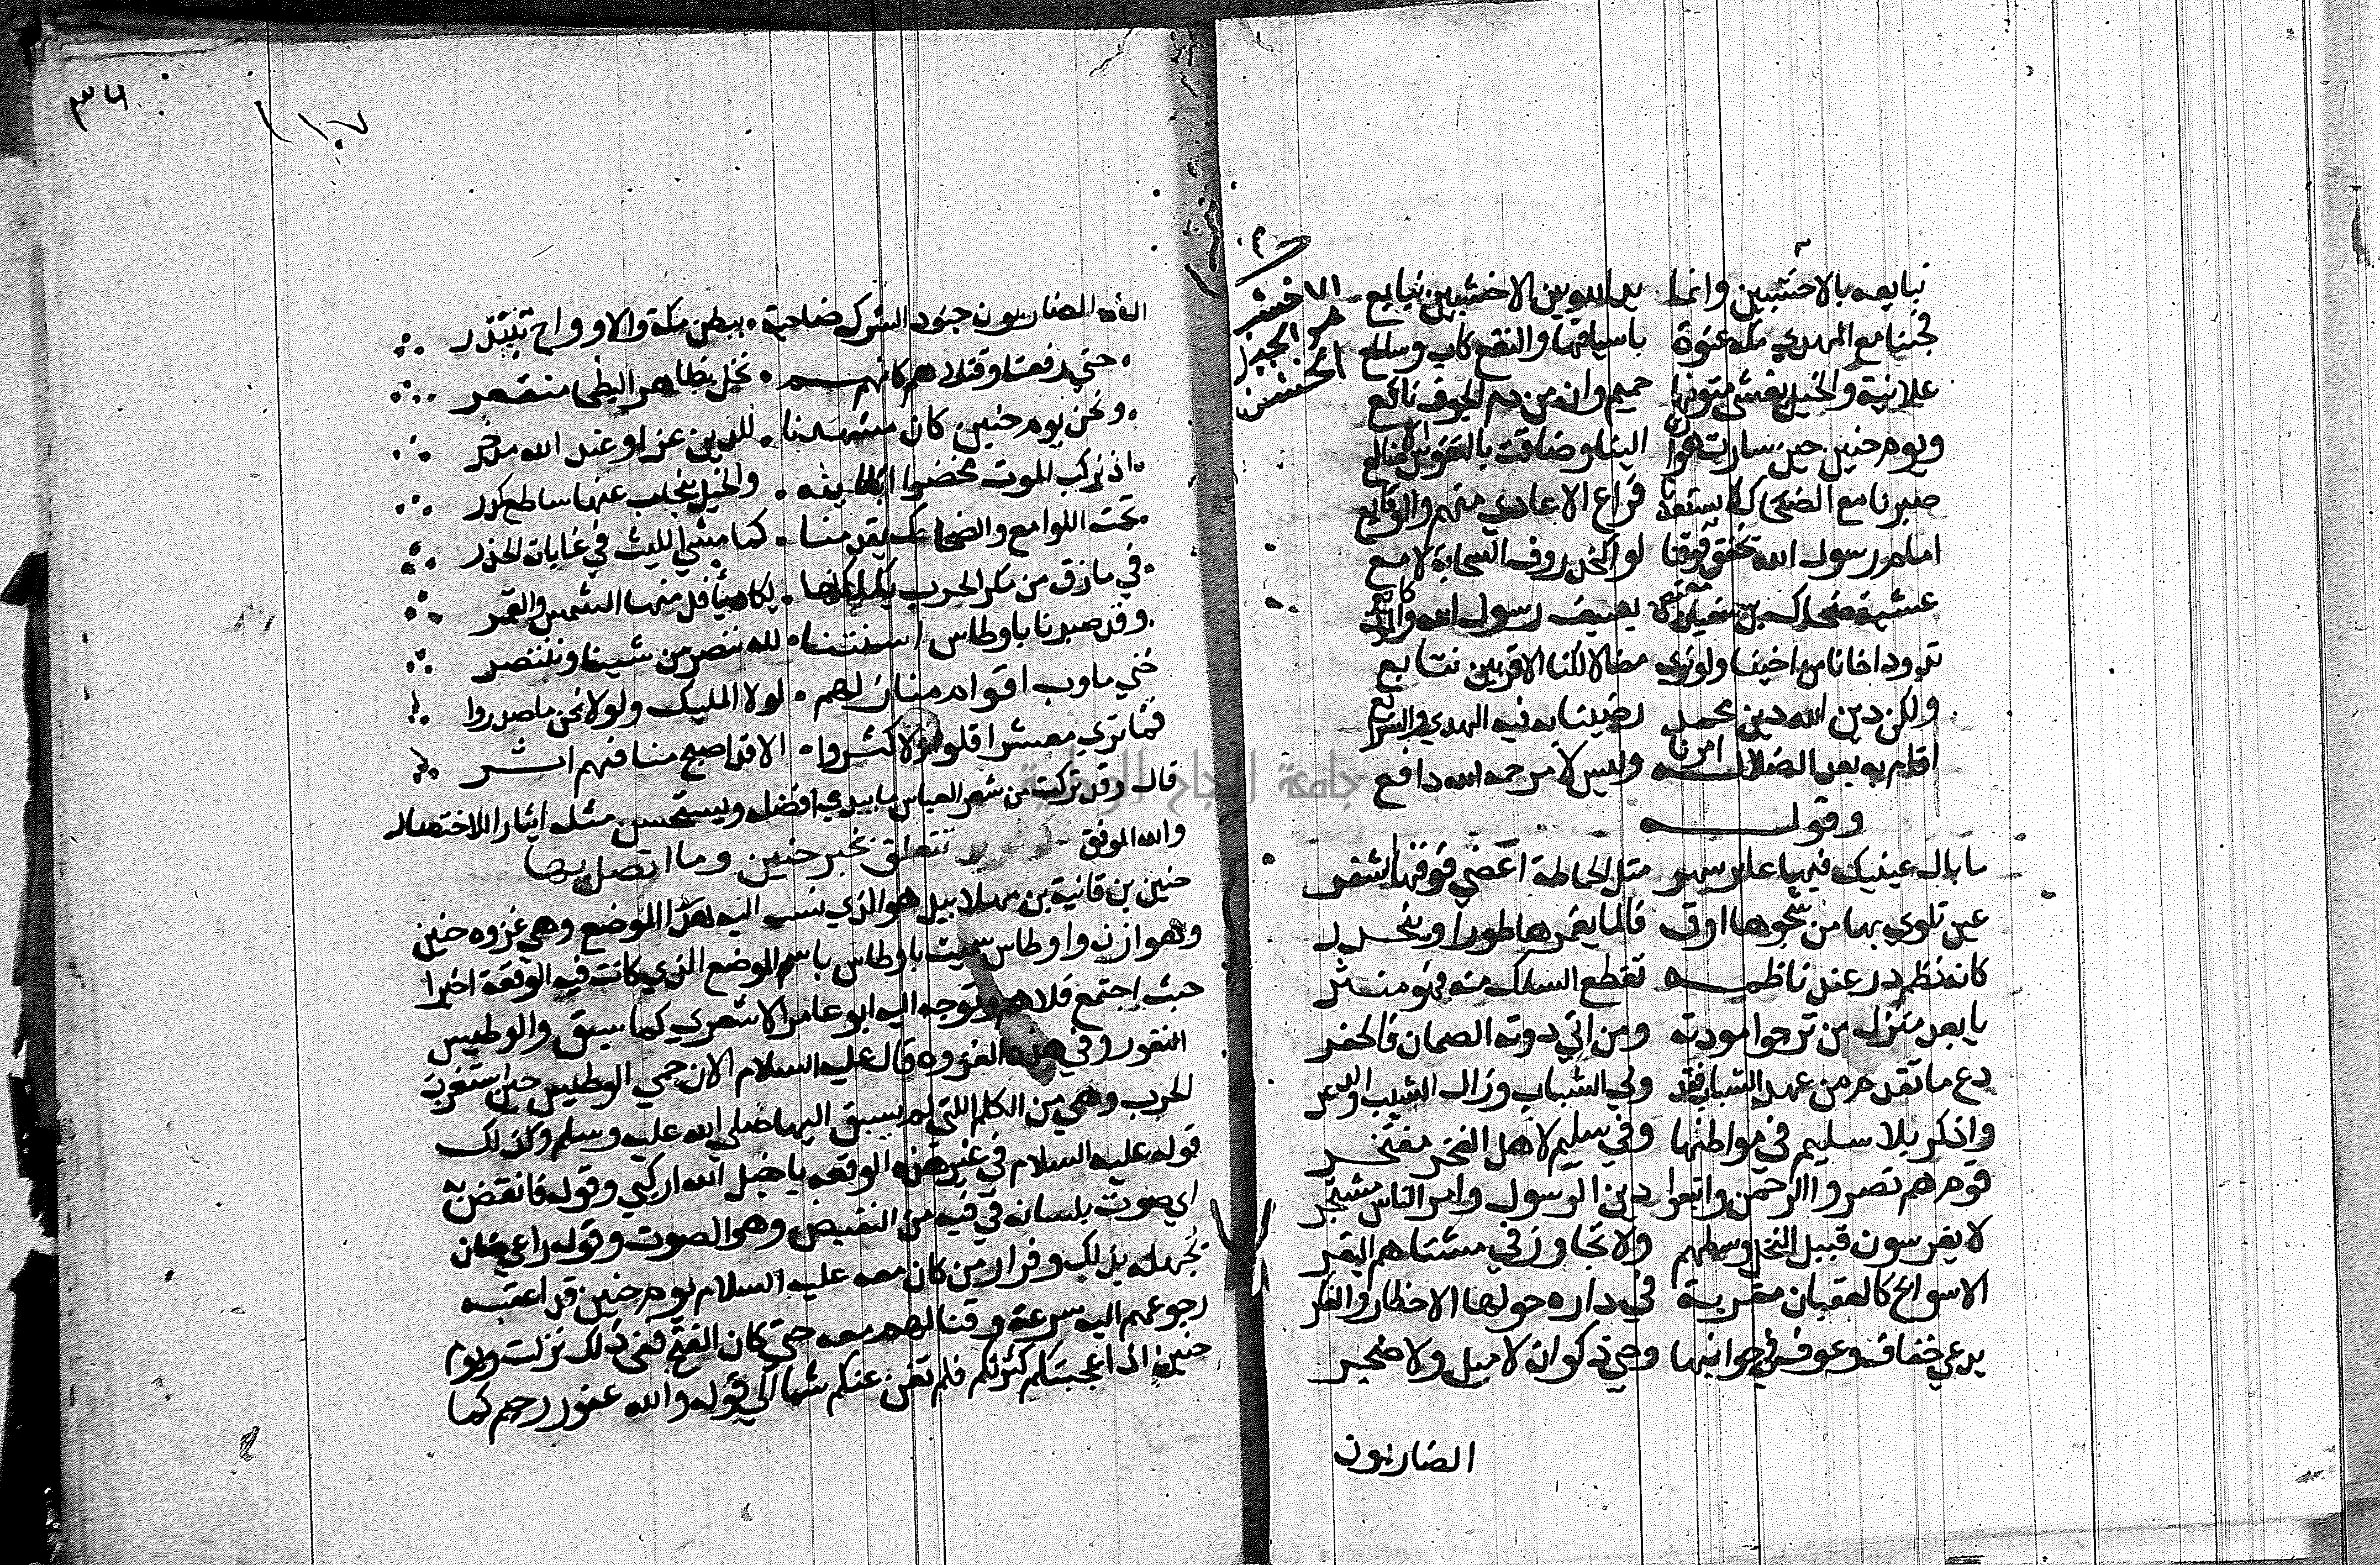 نبايعه بالاخشبين وانما يد الله بين الاخشبين نبايع
فجسنا مع المهدي مكة عنوة باسيافنا والنقع كاب وساطع
علانية والخيل يغشى متونها حميم وان من دم الجوف ناقع
ويوم حنين حين سارت هوازن الينا وضاقت بالنفوس الاضالع
صبرنا مع الضحاك لا يستفزنا قراع الاعادي منهم والوقايع
امام رسول الله يخفق فوقنا لواء كخذروف السحابة لامع
عشية ضحاك بن سفيان معتص بسيف رسول الله والموت كانع
نذود اخانا من اخينا ولو نري مصالا لكنا الاقربين نتابع
ولكن دين الله دين محمد رضينا به فيه الهدي والشرايع
اقام به بعد الضلالة امرنا وليس لامر حمه الله دافع
وقوله
ما بال عينيك فيها عاير سهر مثل الحماطة اغضي فوقها الشفر
عين تاوي بها من شجوها ارق فالماء يغمرها طورا وينحدر
كانه نظم در عند ناظمه تقطع السلك منه فهو منتثر
يا بعد منزل من ترجوا مودته ومن اتي دونه الصمان فالحفر
دع ما تقدم من عهد الشباب فقد ولي الشباب وزال الشيب والزعر
واذكر بلا سليم في مواطنها وفي سليم لاهل الفخر مفتخر
قوم هم نصروا الرحمن واتبعوا دين الرسول وامر الناس مشتجر
لا يغرسون فسيل النخل وسطهم ولا تخاور في مشتاهم البقر
الا سوابح كالعقبان مقربة في داره حولها الاخطار والعكر
يدعي خفاف وعوف في جوانبها وحي ذكوان لا ميل ولا ضجر
الضاربون
الاخشب
هو الجبل
الخشن
٣٦
١٠٧
الضاربون جنود الشرك ضاحية ببطن مكة والارواح تبتدر
حتي رفعنا وقتلاهم كانهم نخل بظاهر البطحا منقعر
ونحن يوم حنين كان مشهدنا للدين عزا وعند الله مدخر
اذ نركب الموت مخضرا بطاينه والخيل ينجاب عنها ساطع كدر
تحت اللوامع والضحاك يقدمنا كما مشي الليث في غابات الخدر
في مازق من مكر الحرب كلكلها يكاد يافل منها الشمس والقمر
وقد صبرنا باوطاس اسنتنا لله ننصر من شينا وننتصر
حتي ياوب اقوام منازلهم لولا المليك ولولا نحن ما صدروا
فما تري معشرا قلوا ولا كثروا الا قد اصبح منا فيهم اثر
قال وقد تركت من شعر العباس ما يبدي افضل ويستحسن مثله ايثارا للاختصار
والله الموفق تتعلق بخبر حنين وما اتصل بها
حنين بن قانية بن مهلابيل هو الذي نسب اليه هذا الموضع وهي غزوه حنين
وهوازن واوطاس سميت باوطاس باسم الموضع الذي كانت فيه الوقعة اخيرا
حيث اجتمع فلاهم وتوجه اليه ابو عامر الاشعري كما سبق والوطيس
التنور وفي هذه الغزوه قال عليه السلام الان حمي الوطيس حين استعرت
الحرب وهي من الكلم التي لم يسبق اليها صلي الله عليه وسلم وكذلك
قوله عليه السلام في غير هذه الوقعه يا خيل الله اركبي وقوله فانقض به
اي صوت بلسانه في فيه من النقيض وهو الصوت وقوله راعي ضان
تجهله بذلك وفرار من كان معه عليه السلام يوم حنين قد اعقبه
رجوعهم اليه سرعة وقتالهم معه حتي كان الفتح ففي ذلك نزلت ويوم
حنين اذ اعجبتكم كثرتكم فلم تغن عنكم شيا الي قوله والله غفور رحيم كما
جامعة النجاح الوطنية